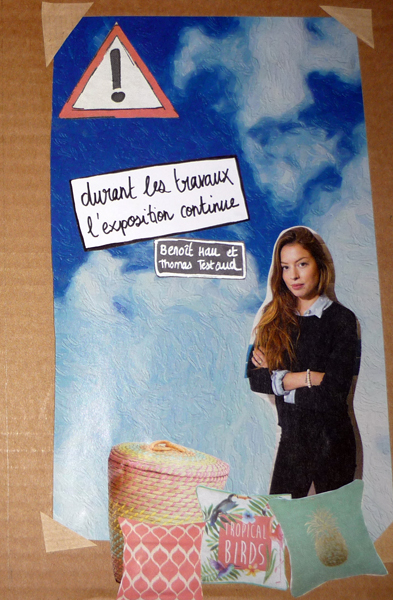 !
durant les travaux
l'exposition continue
Benoît Hau et
Thomas Testaud
TROPICAL
BIRDS